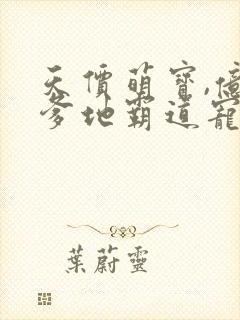 天價萌寶,億
爹地霸道寵
葉蔚靈